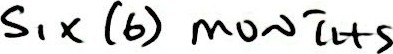 Six (6) MONTHS